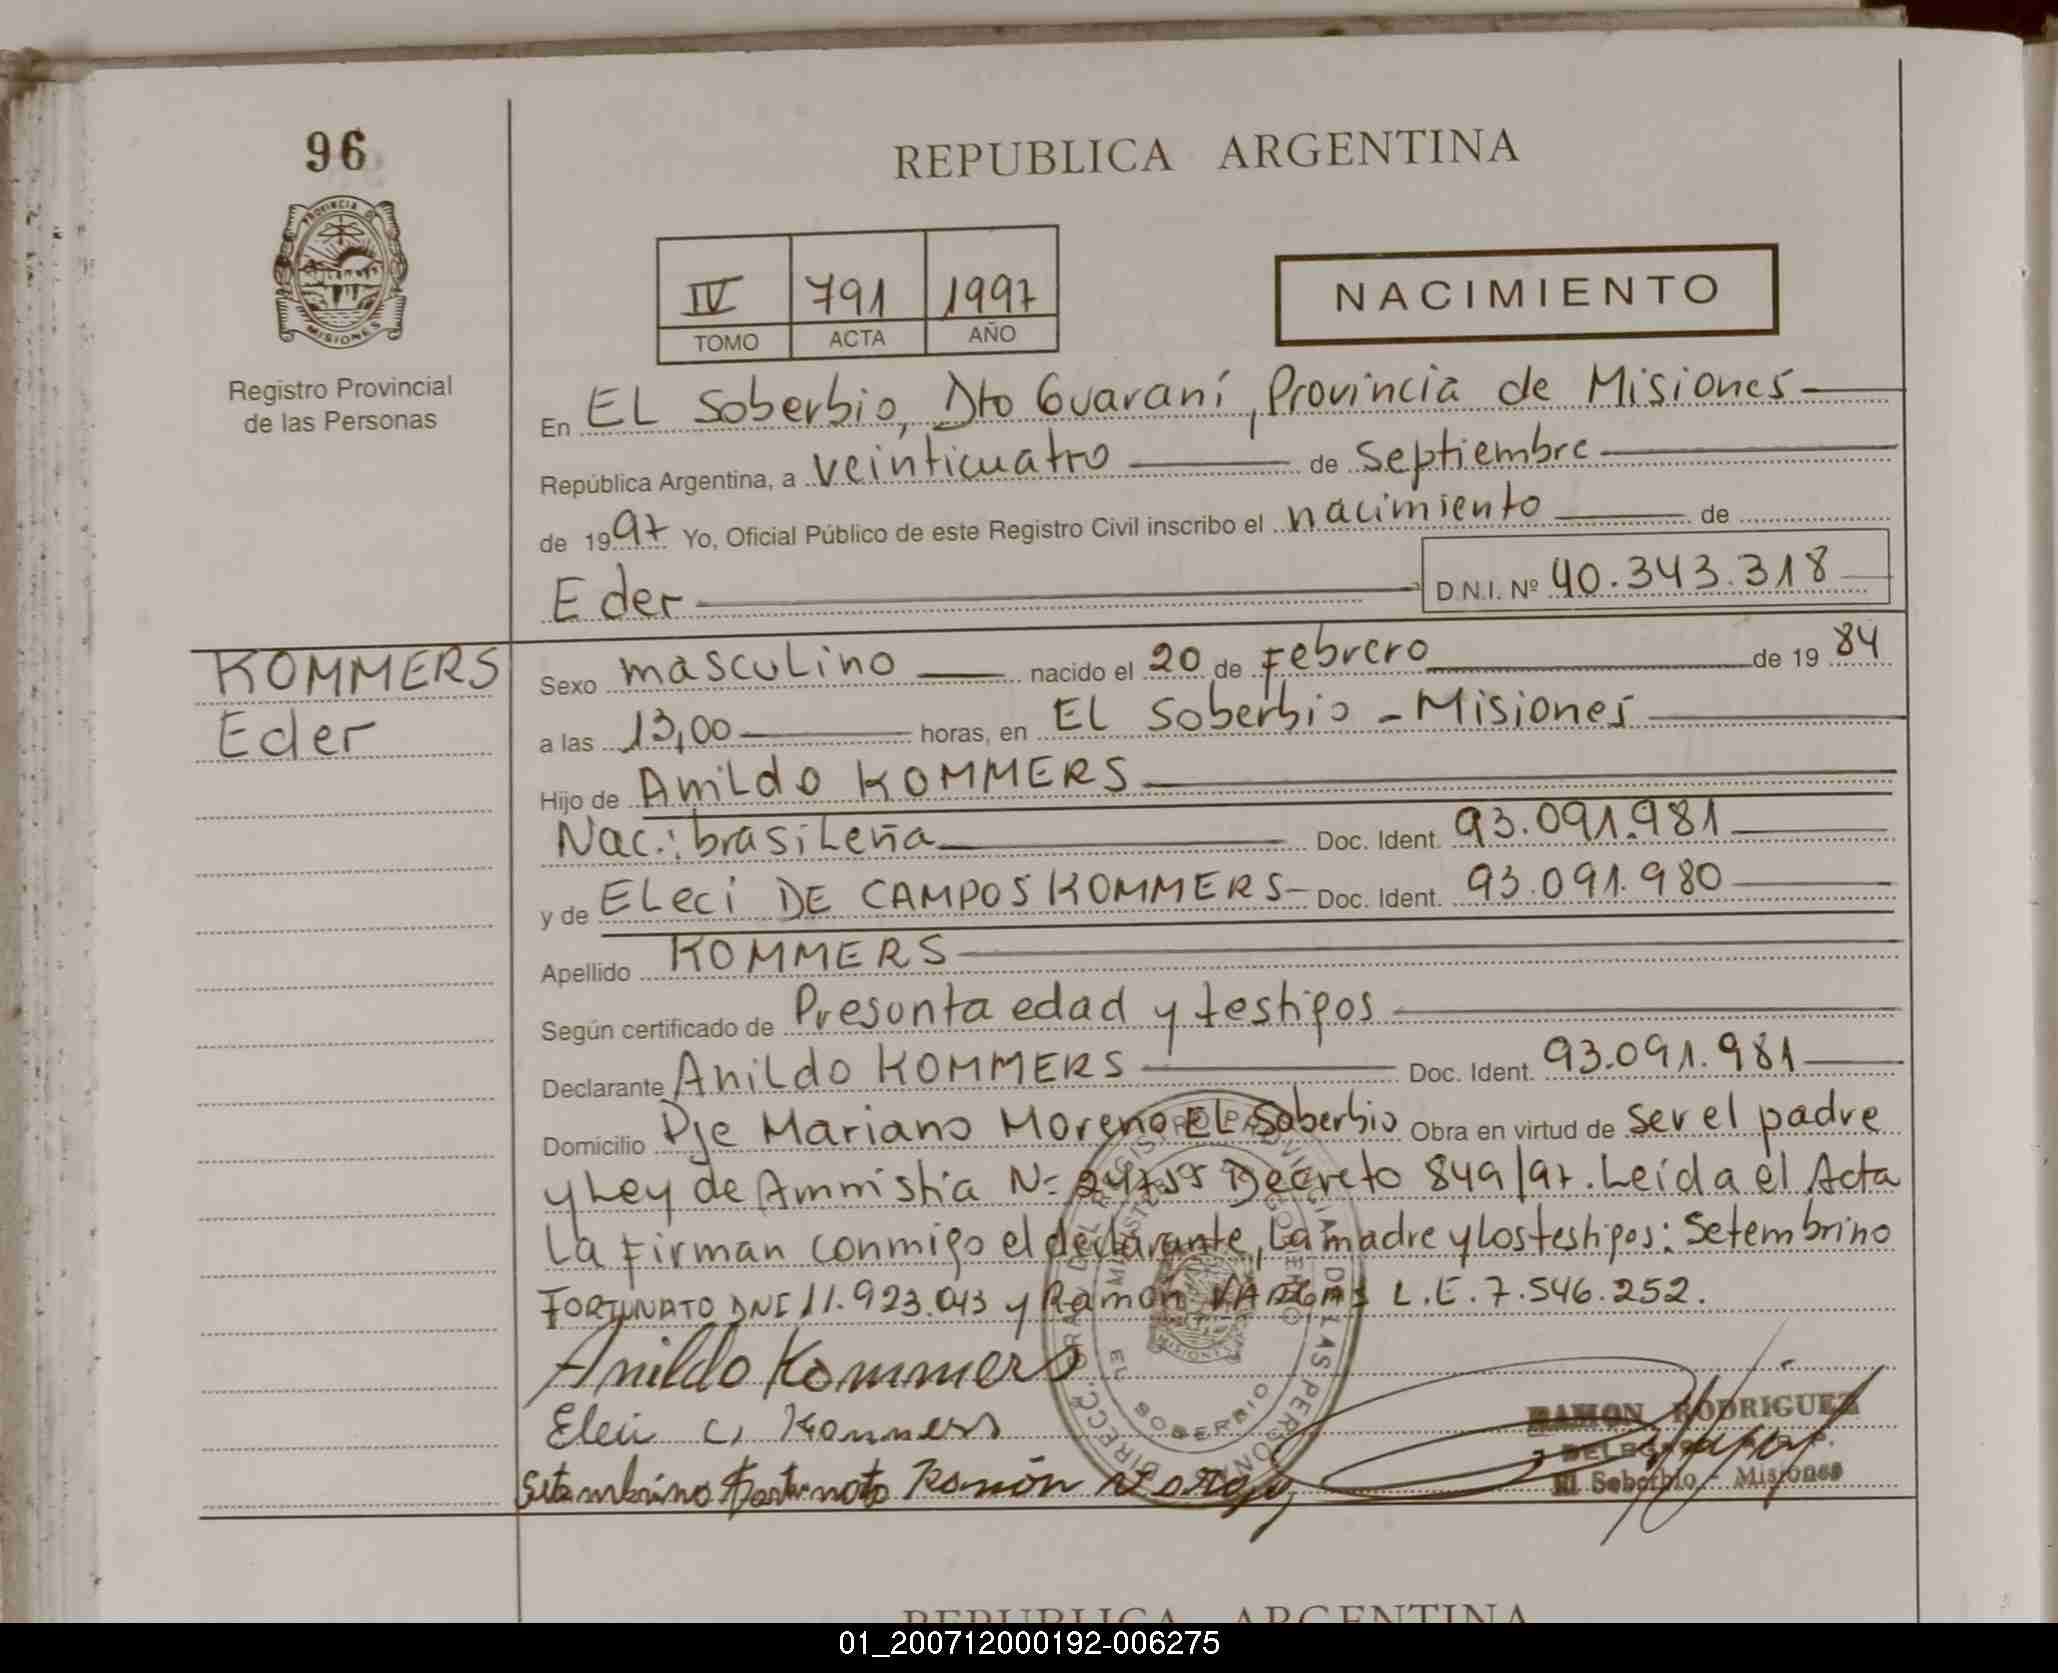 96
REPUBLICA ARGENTINA
PROVINCIA DE
MISIONES
IV 791 1997
TOMO ACTA AÑO
NACIMIENTO
Registro Provincial
de las Personas
En EL Soberbio, Dto Guaraní, Provincia de Misiones
República Argentina, a veinticuatro de septiembre
de 1997 Yo, Oficial Público de este Registro Civil inscribo el nacimiento de
Eder D.N.I. Nº 40.343.318
KOMMERS
Eder
Sexo masculino nacido el 20 de Febrero de 19 84
a las 13,00 horas, en EL Soberbio - Misiones
Hijo de Anildo KOMMERS
Nac.: brasileña Doc. Ident. 93.091.981
y de ELeci DE CAMPOS KOMMERS Doc. Ident. 93.091.980
Apellido KOMMERS
Según certificado de Presunta edad y testigos
Declarante Anildo KOMMERS Doc. Ident. 93.091.981
Domicilio Pje Mariano Moreno EL Soberbio Obra en virtud de ser el padre
y Ley de Amnistia N= 24755 Decreto 849/97. Leída el Acta
La Firman conmigo el declarante, La madre y los testigos: Setembrino
FORTUNATO DNI 11.923.043 y Ramon VARGAS L.E. 7.546.252.
Anildo Kommers
Eleci C. Kommers
Setembrino Fortunato Ramón Vargas
EL SOBERBIO
MISIONES
RAMON RODRIGUEZ
El Soberbio - Misiones
REPUBLICA ARGENTINA
01_200712000192-006275